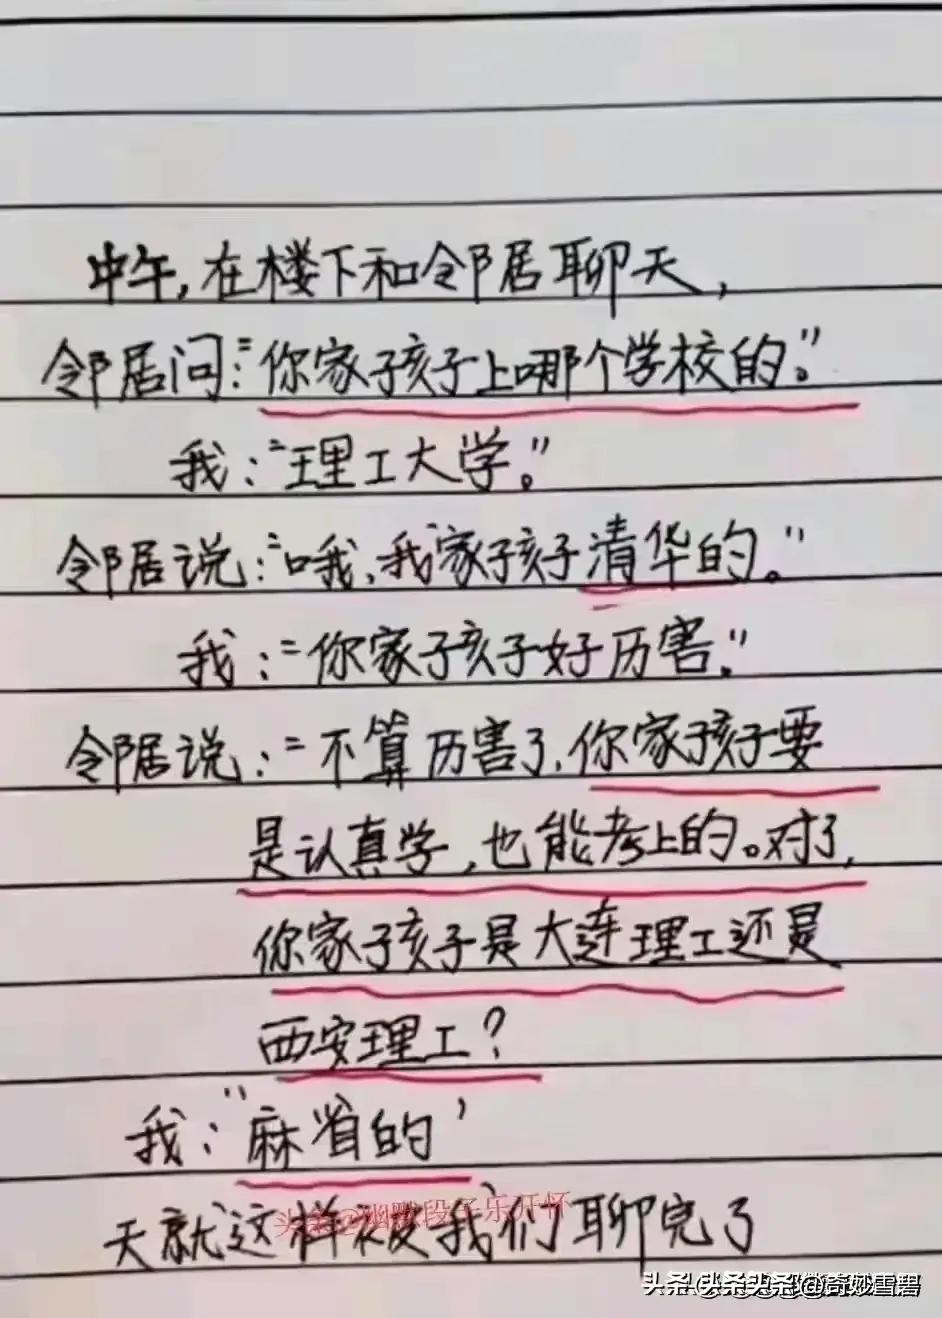 中午,在楼下和邻居聊天,
邻居问:“你家孩子上哪个学校的。”
我:“理工大学。”
邻居说:“哦,我家孩子清华的。”
我:“你家孩子好厉害。”
邻居说:“不算厉害了,你家孩子要
是认真学,也能考上的。对了,
你家孩子是大连理工还是
西安理工?
我:“麻省的’
头条@幽默段子乐开怀
天就这样被我们聊完了
头条@奇妙雪碧